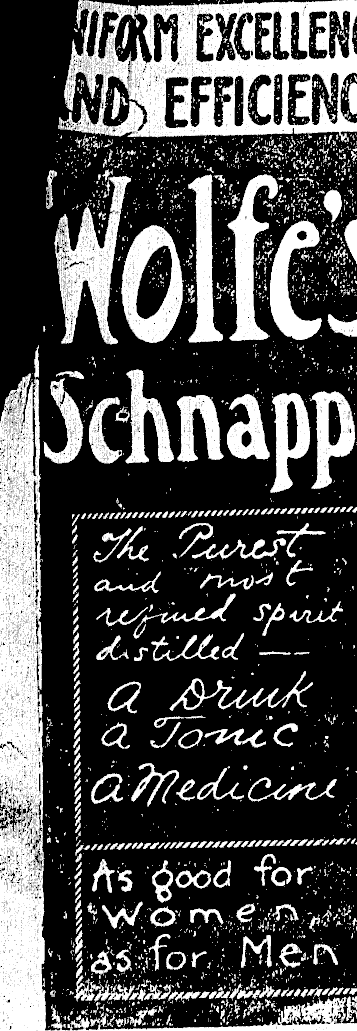 NIFORM EXCELLENC
AND, EFFICIENC
Wolfe's
Schnapp
The Purest
and most
refined spirit
distilled —
A Drink
A Tonic
A Medicine
As good for
Women,
as for Men